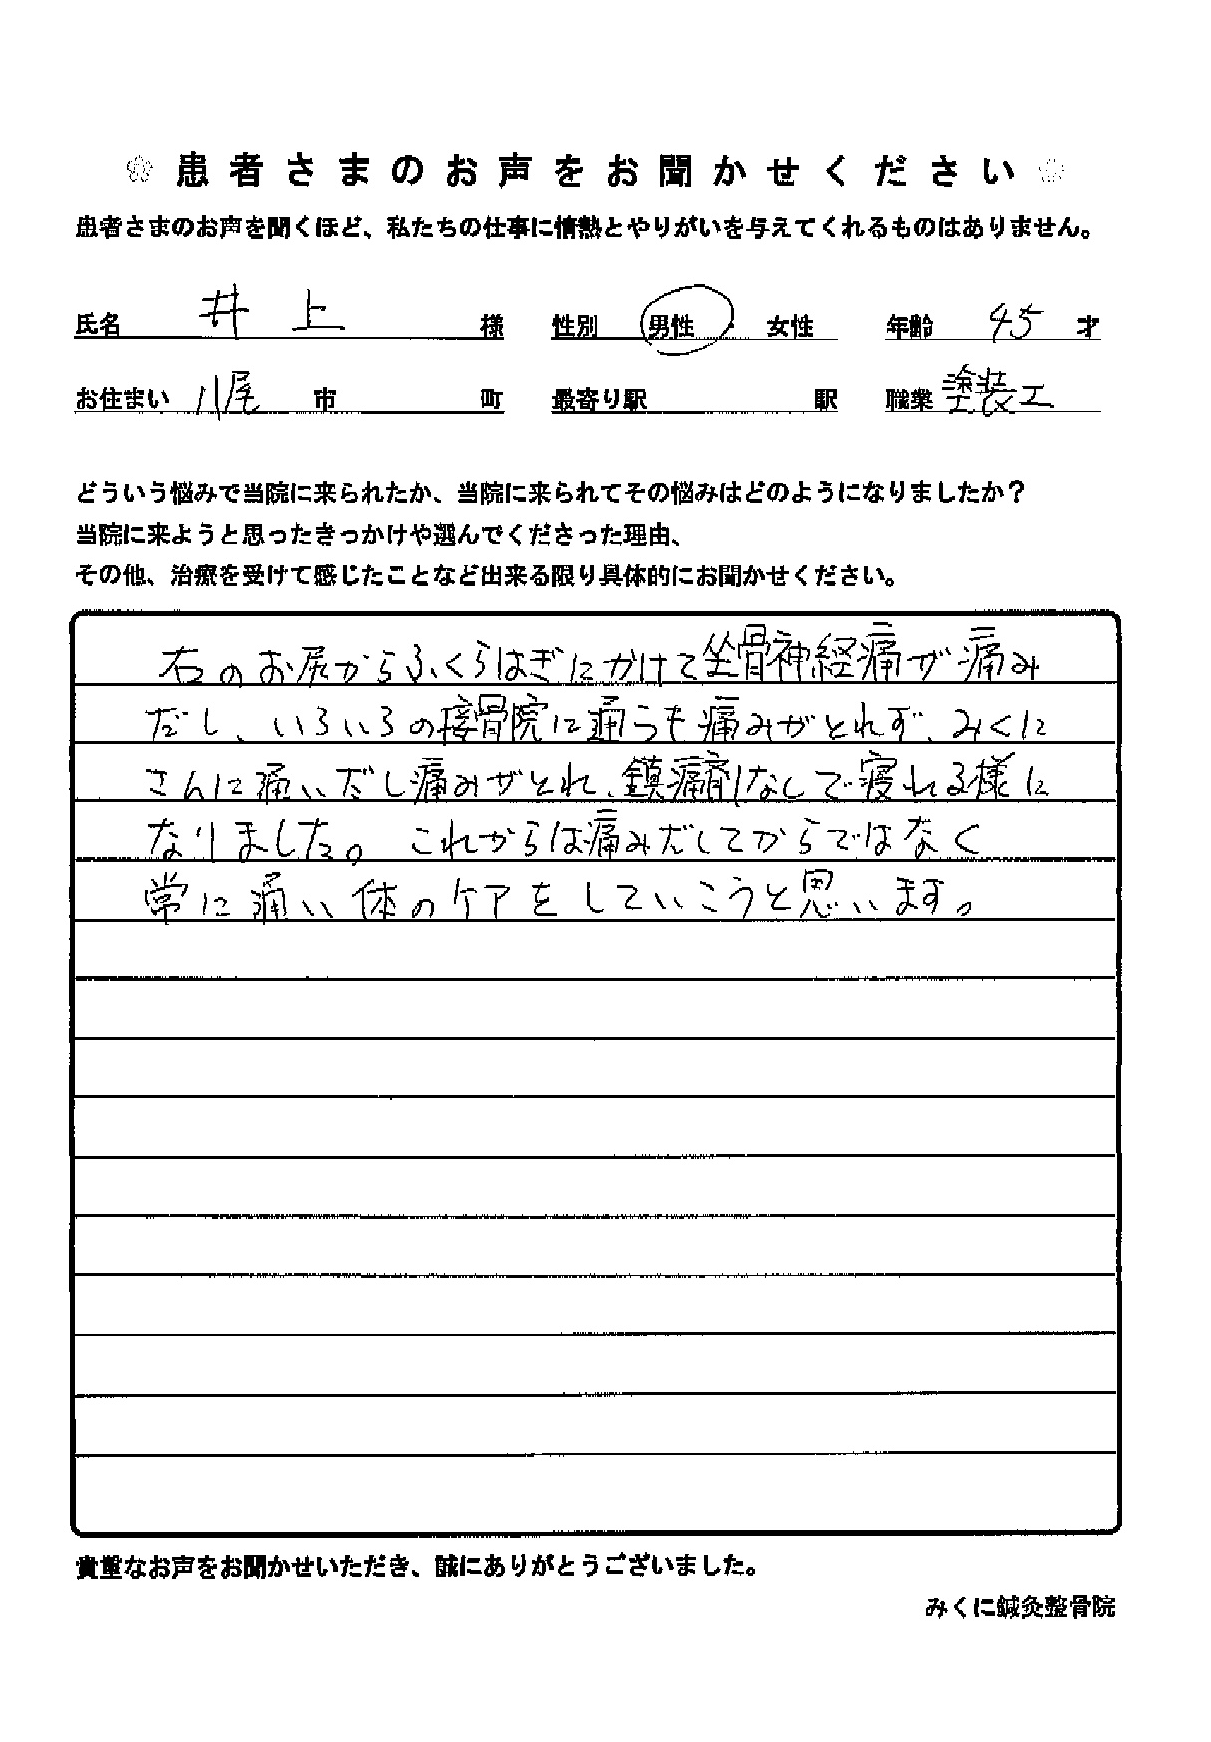 患者さまのお声をお聞かせください
患者さまのお声を聞くほど、私たちの仕事に情熱とやりがいを与えてくれるものはありません。
氏名 井上 様 性別 男性 ・ 女性 年齢 45 才
お住まい 八尾 市 町 最寄り駅 駅 職業 塗装工
どういう悩みで当院に来られたか、当院に来られてその悩みはどのようになりましたか？
当院に来ようと思ったきっかけや選んでくださった理由、
その他、治療を受けて感じたことなど出来る限り具体的にお聞かせください。
右のお尻からふくらはぎにかけて坐骨神経痛が痛み
だし、いろいろの接骨院に通うも痛みがとれず、みくに
さんに通いだし痛みがとれ、鎮痛剤なしで寝れる様に
なりました。これからは痛みだしてからではなく
常に通い体のケアをしていこうと思います。
貴重なお声をお聞かせいただき、誠にありがとうございました。
みくに鍼灸整骨院